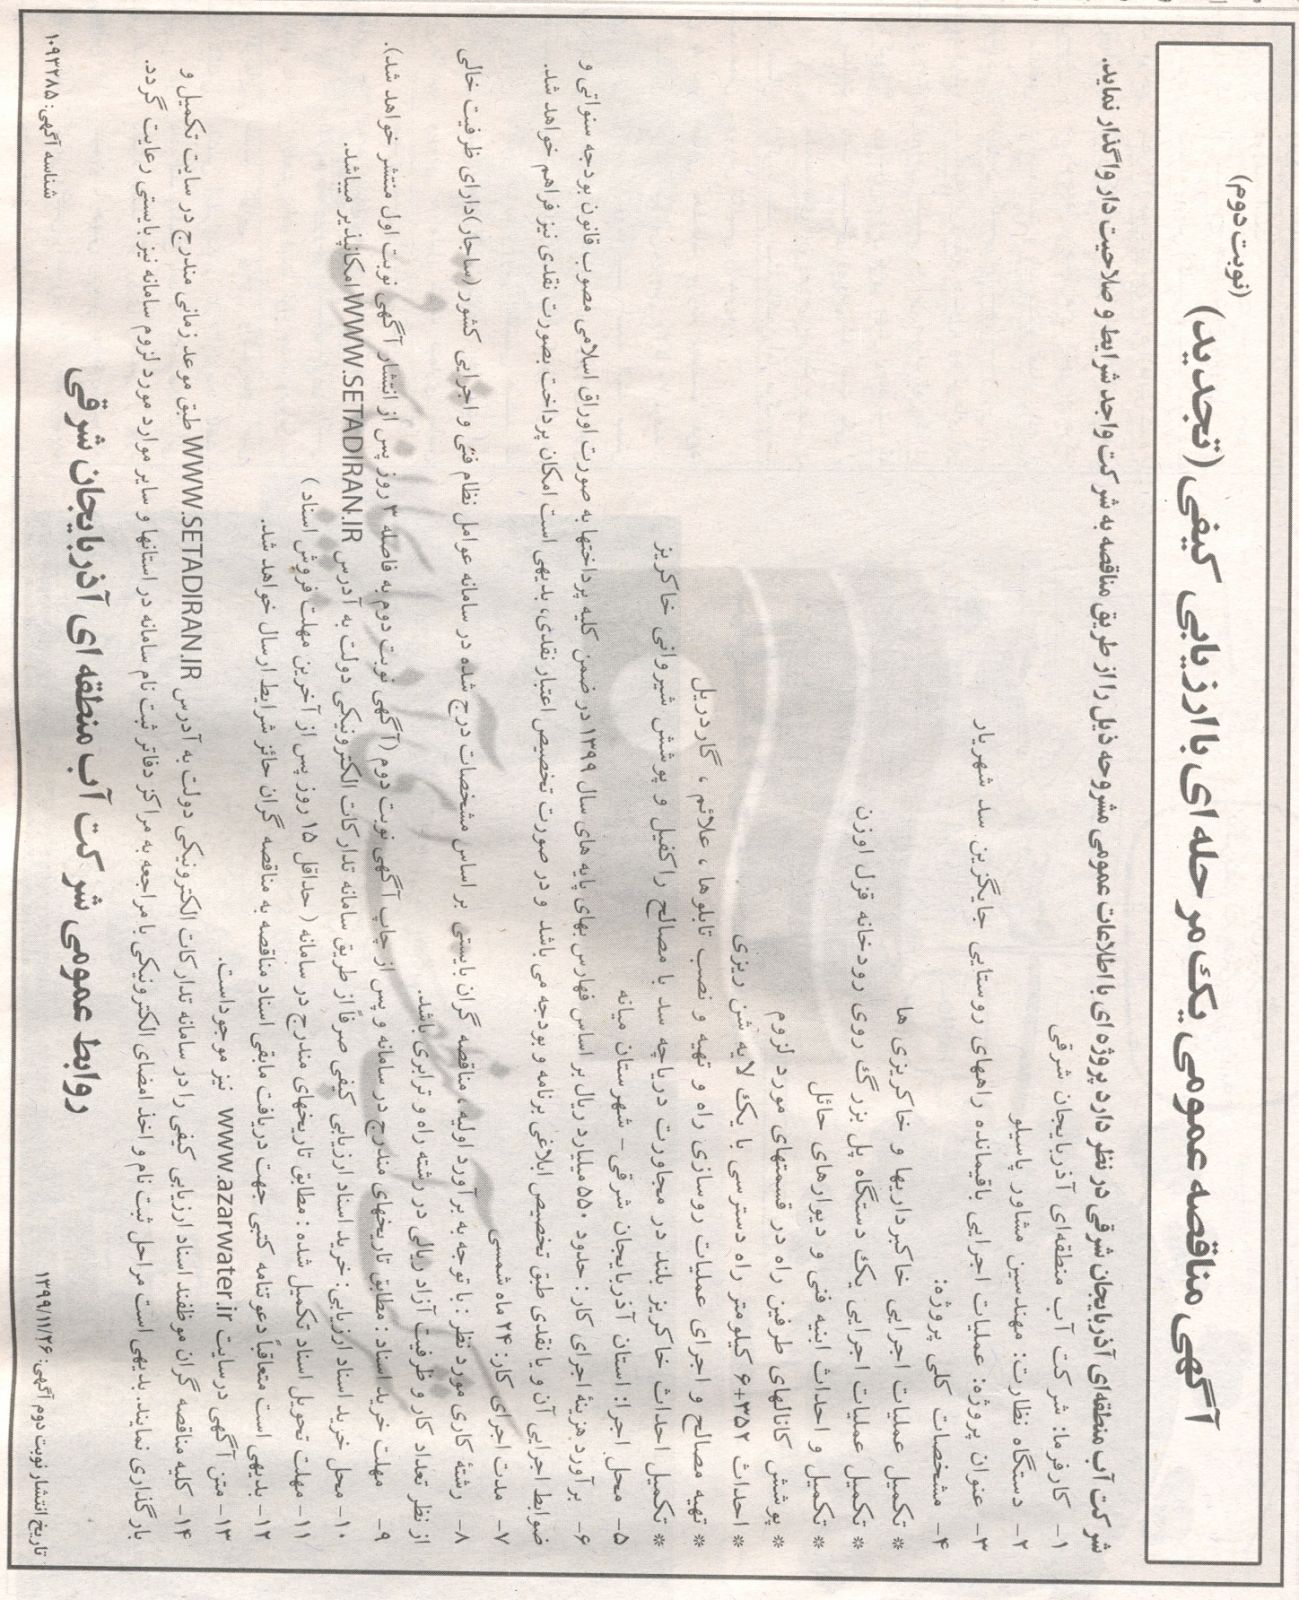 آگهی مناقصه عمومی یک مرحله ای با ارزیابی کیفی (تجدید)
(نوبت دوم)
شرکت آب منطقه‌ای آذربایجان شرقی در نظر دارد پروژه ای با اطلاعات عمومی مشروحه ذیل را از طریق مناقصه به شرکت واجد شرایط و صلاحیت دار واگذار نماید.
۱- کارفرما: شرکت آب منطقه‌ای آذربایجان شرقی
۲- دستگاه نظارت: مهندسین مشاور پاسیلو
۳- عنوان پروژه: عملیات اجرایی باقیمانده راههای روستایی جایگزین سد شهریار
۴- مشخصات کلی پروژه:
* تکمیل عملیات اجرایی خاکبرداریها و خاکریزی ها
* تکمیل عملیات اجرایی یک دستگاه پل بزرگ روی رودخانه قزل اوزن
* تکمیل و احداث ابنیه فنی و دیوارهای حائل
* پوشش کانالهای طرفین راه در قسمتهای مورد لزوم
* احداث ۳۵۲+۶ کیلومتر راه دسترسی با یک لایه شن ریزی
* تهیه مصالح و اجرای عملیات روسازی راه و تهیه و نصب تابلوها ، علائم ، گاردریل
* تکمیل احداث خاکریز بلند در مجاورت دریاچه سد با مصالح راکفیل و پوشش شیروانی خاکریز
۵- محل اجرا: استان آذربایجان شرقی - شهرستان میانه
۶- برآورد هزینۀ اجرای کار : حدود ۵۵۰ میلیارد ریال بر اساس فهارس بهای پایه های سال ۱۳۹۹ در ضمن کلیه پرداختها به صورت اوراق اسلامی مصوب قانون بودجه سنواتی و
ضوابط اجرایی آن و یا نقدی طبق تخصیص ابلاغی برنامه و بودجه می باشد و در صورت تخصیص اعتبار نقدی، بدیهی است امکان پرداخت بصورت نقدی نیز فراهم خواهد شد.
۷- مدت اجرای کار: ۲۴ ماه شمسی
۸- رشتۀ کاری مورد نظر : با توجه به برآورد اولیه ، مناقصه گران بایستی بر اساس مشخصات درج شده در سامانه عوامل نظام فنی و اجرایی کشور (ساجار)دارای ظرفیت خالی
از نظر تعداد کار و ظرفیت آزاد ریالی در رشته راه و ترابری باشد.
۹- مهلت خرید اسناد : مطابق تاریخهای مندرج در سامانه و پس از چاپ آگهی نوبت دوم (آگهی نوبت دوم به فاصله ۳ روز پس از انتشار آگهی نوبت اول منتشر خواهد شد).
۱۰- محل خرید اسناد ارزیابی: خرید اسناد ارزیابی کیفی صرفاً از طریق سامانه تدارکات الکترونیکی دولت به آدرس WWW.SETADIRAN.IR امکانپذیر میباشد.
۱۱- مهلت تحویل اسناد تکمیل شده : مطابق تاریخهای مندرج در سامانه ( حداقل ۱۵ روز پس از آخرین مهلت فروش اسناد )
۱۲- بدیهی است متعاقباً دعوتنامه کتبی جهت دریافت مابقی اسناد مناقصه به مناقصه گران حائز شرایط ارسال خواهد شد.
۱۳- متن آگهی درسایت www.azarwater.ir نیز موجوداست.
۱۴- کلیه مناقصه گران موظفند اسناد ارزیابی کیفی را در سامانه تدارکات الکترونیکی دولت به آدرس WWW.SETADIRAN.IR طبق موعد زمانی مندرج در سایت تکمیل و
بارگذاری نمایند. بدیهی است مراحل ثبت نام و اخذ امضای الکترونیکی با مراجعه به مراکز دفاتر ثبت نام سامانه در استانها و سایر موارد مورد لزوم سامانه نیز بایستی رعایت گردد.
روابط عمومی شرکت آب منطقه ای آذربایجان شرقی
تاریخ انتشار نوبت دوم آگهی: ۱۳۹۹/۱۱/۲۶
شناسه آگهی: ۱۰۹۳۲۸۵